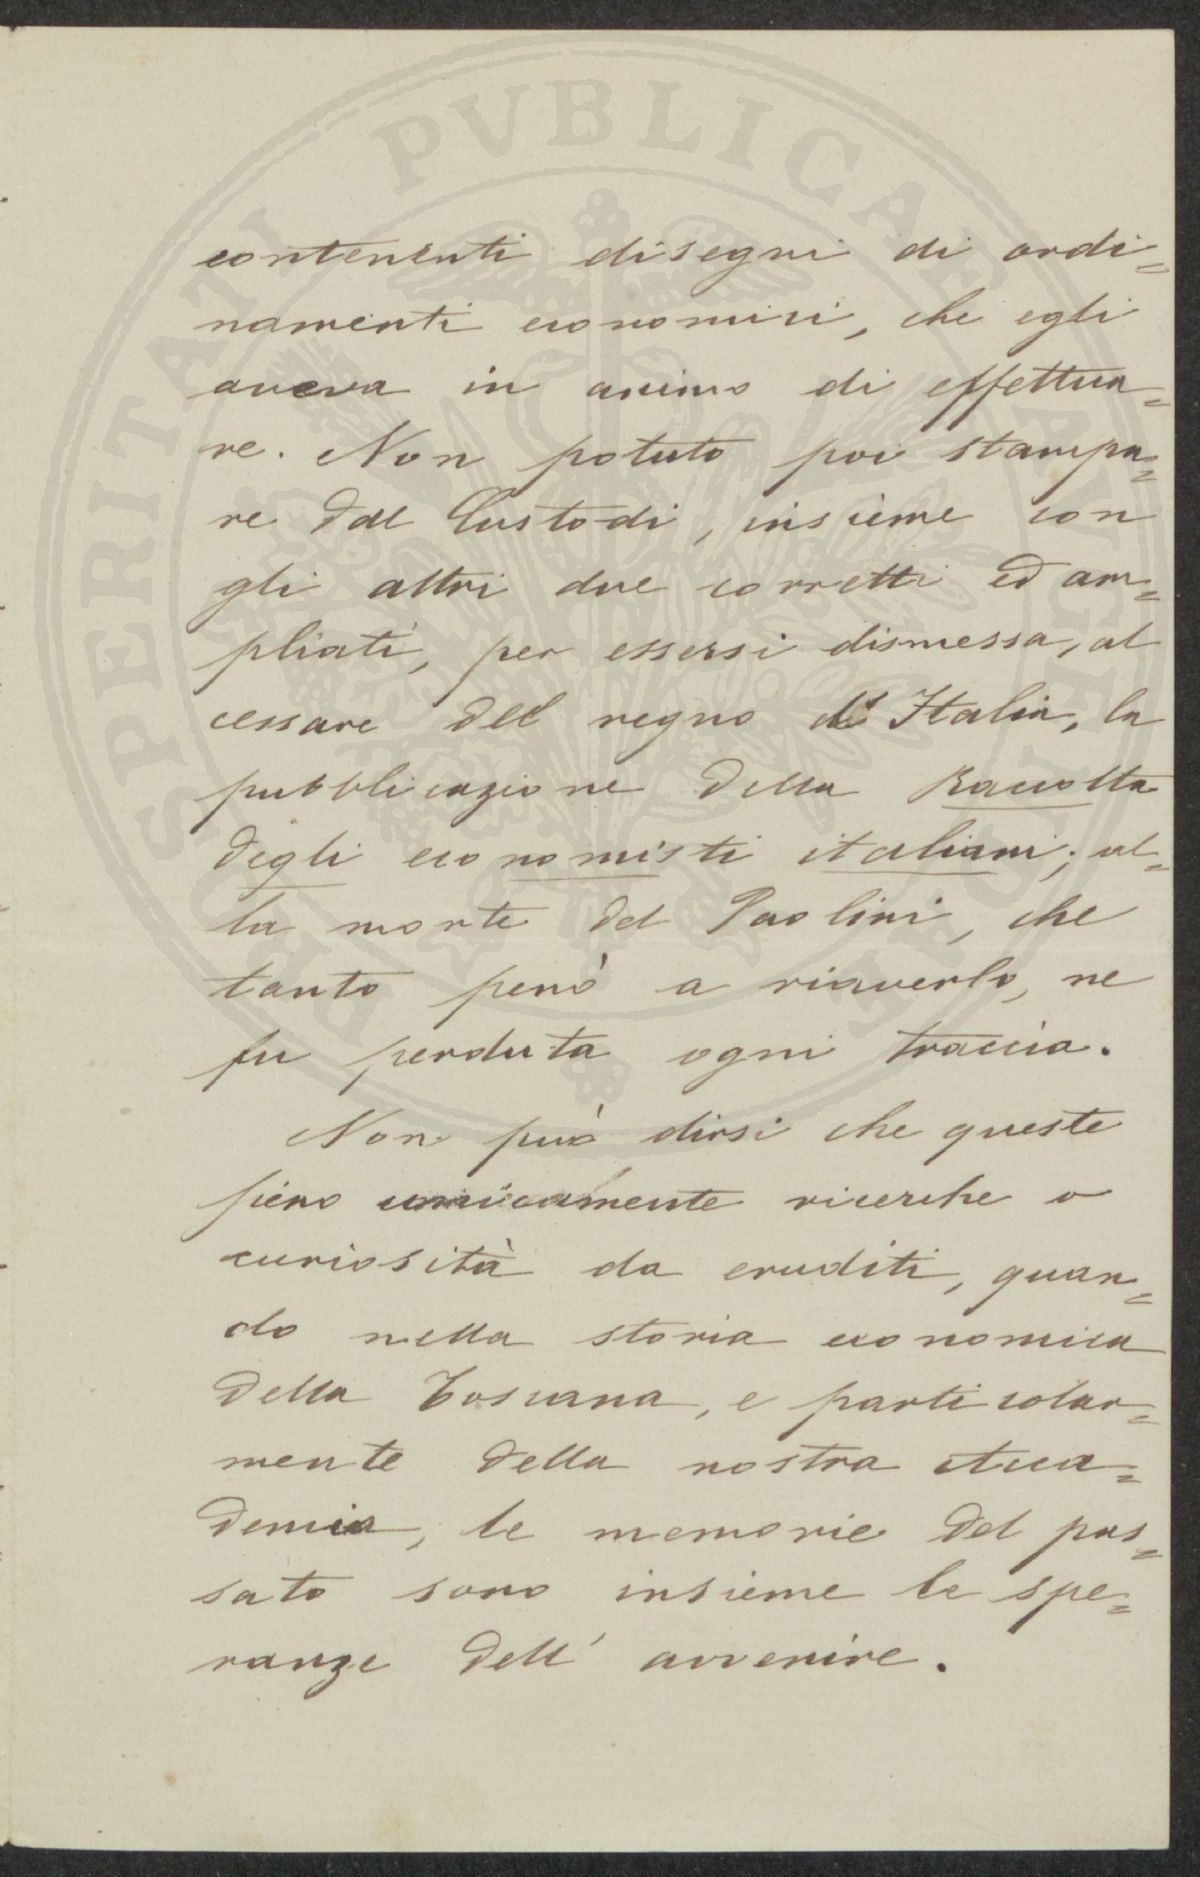 contenenti disegni di ordi=
namenti economici, che egli
aveva in animo di effettua=
re. Non potuto poi stampa=
re dal Custodi, insieme con
gli altri due corretti ed am=
pliati, per essersi dismessa, al
cessare del regno d'Italia, la
pubblicazione della Raccolta
degli economisti italiani; al=
la morte del Paolini, che
tanto penò a riaverlo, ne
fu perduta ogni traccia.
Non può dirsi che queste
sieno unicamente ricerche o
curiosità da eruditi, quan=
do nella storia economica
della Toscana, e particolar=
mente della nostra Acca=
demia, le memorie del pas=
sato sono insieme le spe=
ranze dell'avvenire.
PROSPERITATI PVBLICAE AVGENDAE